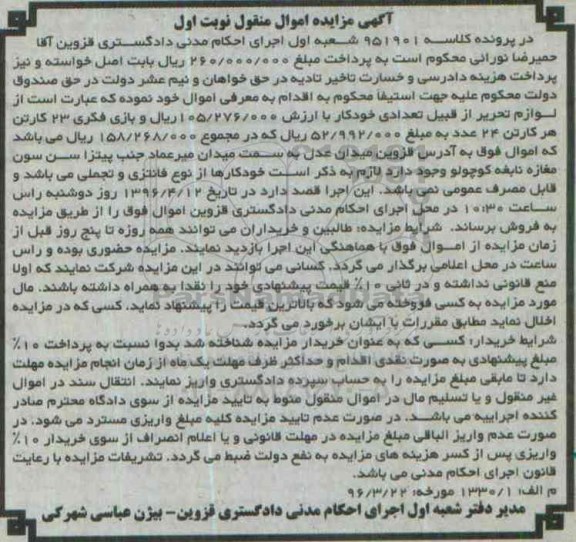 آگهی مزایده اموال منقول نوبت اول
در پرونده کلاسه ۹۵۱۹۰۱ شعبه اول اجرای احکام مدنی دادگستری قزوین آقا
حمیرضا نورانی محکوم است به پرداخت مبلغ ۲۶۰/۰۰۰/۰۰۰ ریال بابت اصل خواسته و نیز
پرداخت هزینه دادرسی و خسارت تاخیر تادیه در حق خواهان و نیم عشر دولت در حق صندوق
دولت محکوم علیه جهت استیفا محکوم به اقدام به معرفی اموال خود نموده که عبارت است از
لوازم تحریر از قبیل تعدادی خودکار با ارزش ۱۰۵/۲۷۶/۰۰۰ ریال و بازی فکری ۲۳ کارتن
هر کارتن ۲۴ عدد به مبلغ ۵۲/۹۹۲/۰۰۰ ریال که در مجموع ۱۵۸/۲۶۸/۰۰۰ ریال می باشد
که اموال فوق به آدرس قزوین میدان عدل به سمت میدان میرعماد جنب پیتزا سن سون
مغازه نابغه کوچولو وجود دارد لازم به ذکر است خودکارها از نوع فانتزی و تجملی می باشد و
قابل مصرف عمومی نمی باشد. این اجرا قصد دارد در تاریخ ۱۳۹۶/۴/۱۲ روز دوشنبه راس
ساعت ۱۰:۳۰ در محل اجرای احکام مدنی دادگستری قزوین اموال فوق را از طریق مزایده
به فروش برساند. شرایط مزایده: طالبین و خریداران می توانند همه روزه تا پنج روز قبل از
زمان مزایده از اموال فوق با هماهنگی این اجرا بازدید نمایند. مزایده حضوری بوده و راس
ساعت در محل اعلامی برگذار می گردد. کسانی می توانند در این مزایده شرکت نمایند که اولا
منع قانونی نداشته و در ثانی ۱۰٪ قیمت پیشنهادی خود را نقدا به همراه داشته باشند. مال
مورد مزایده به کسی فروخته می شود که بالاترین قیمت را پیشنهاد نماید. کسی که در مزایده
اخلال نماید مطابق مقررات با ایشان برخورد می گردد.
شرایط خریدار: کسی که به عنوان خریدار مزایده شناخته شد بدوا نسبت به پرداخت ۱۰٪
مبلغ پیشنهادی به صورت نقدی اقدام و حداکثر ظرف مهلت یک ماه از زمان انجام مزایده مهلت
دارد تا مابقی مبلغ مزایده را به حساب سپرده دادگستری واریز نمایند. انتقال سند در اموال
غیر منقول و یا تسلیم مال در اموال منقول منوط به تایید مزایده از سوی دادگاه محترم صادر
کننده اجراییه می باشد. در صورت عدم تایید مزایده کلیه مبلغ واریزی مسترد می شود. در
صورت عدم واریز الباقی مبلغ مزایده در مهلت قانونی و یا اعلام انصراف از سوی خریدار ۱۰٪
واریزی پس از کسر هزینه های مزایده به نفع دولت ضبط می گردد. تشریفات مزایده با رعایت
قانون اجرای احکام مدنی می باشد.
م الف: ۱۳۳۰/۱ مورخه: ۹۶/۳/۲۲
مدیر دفتر شعبه اول اجرای احکام مدنی دادگستری قزوین- بیژن عباسی شهرکی